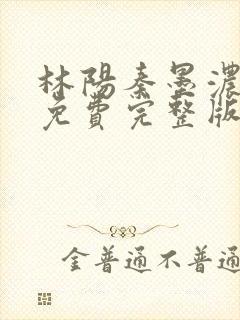 林陽秦墨濃
免費完整版
金普通不普通